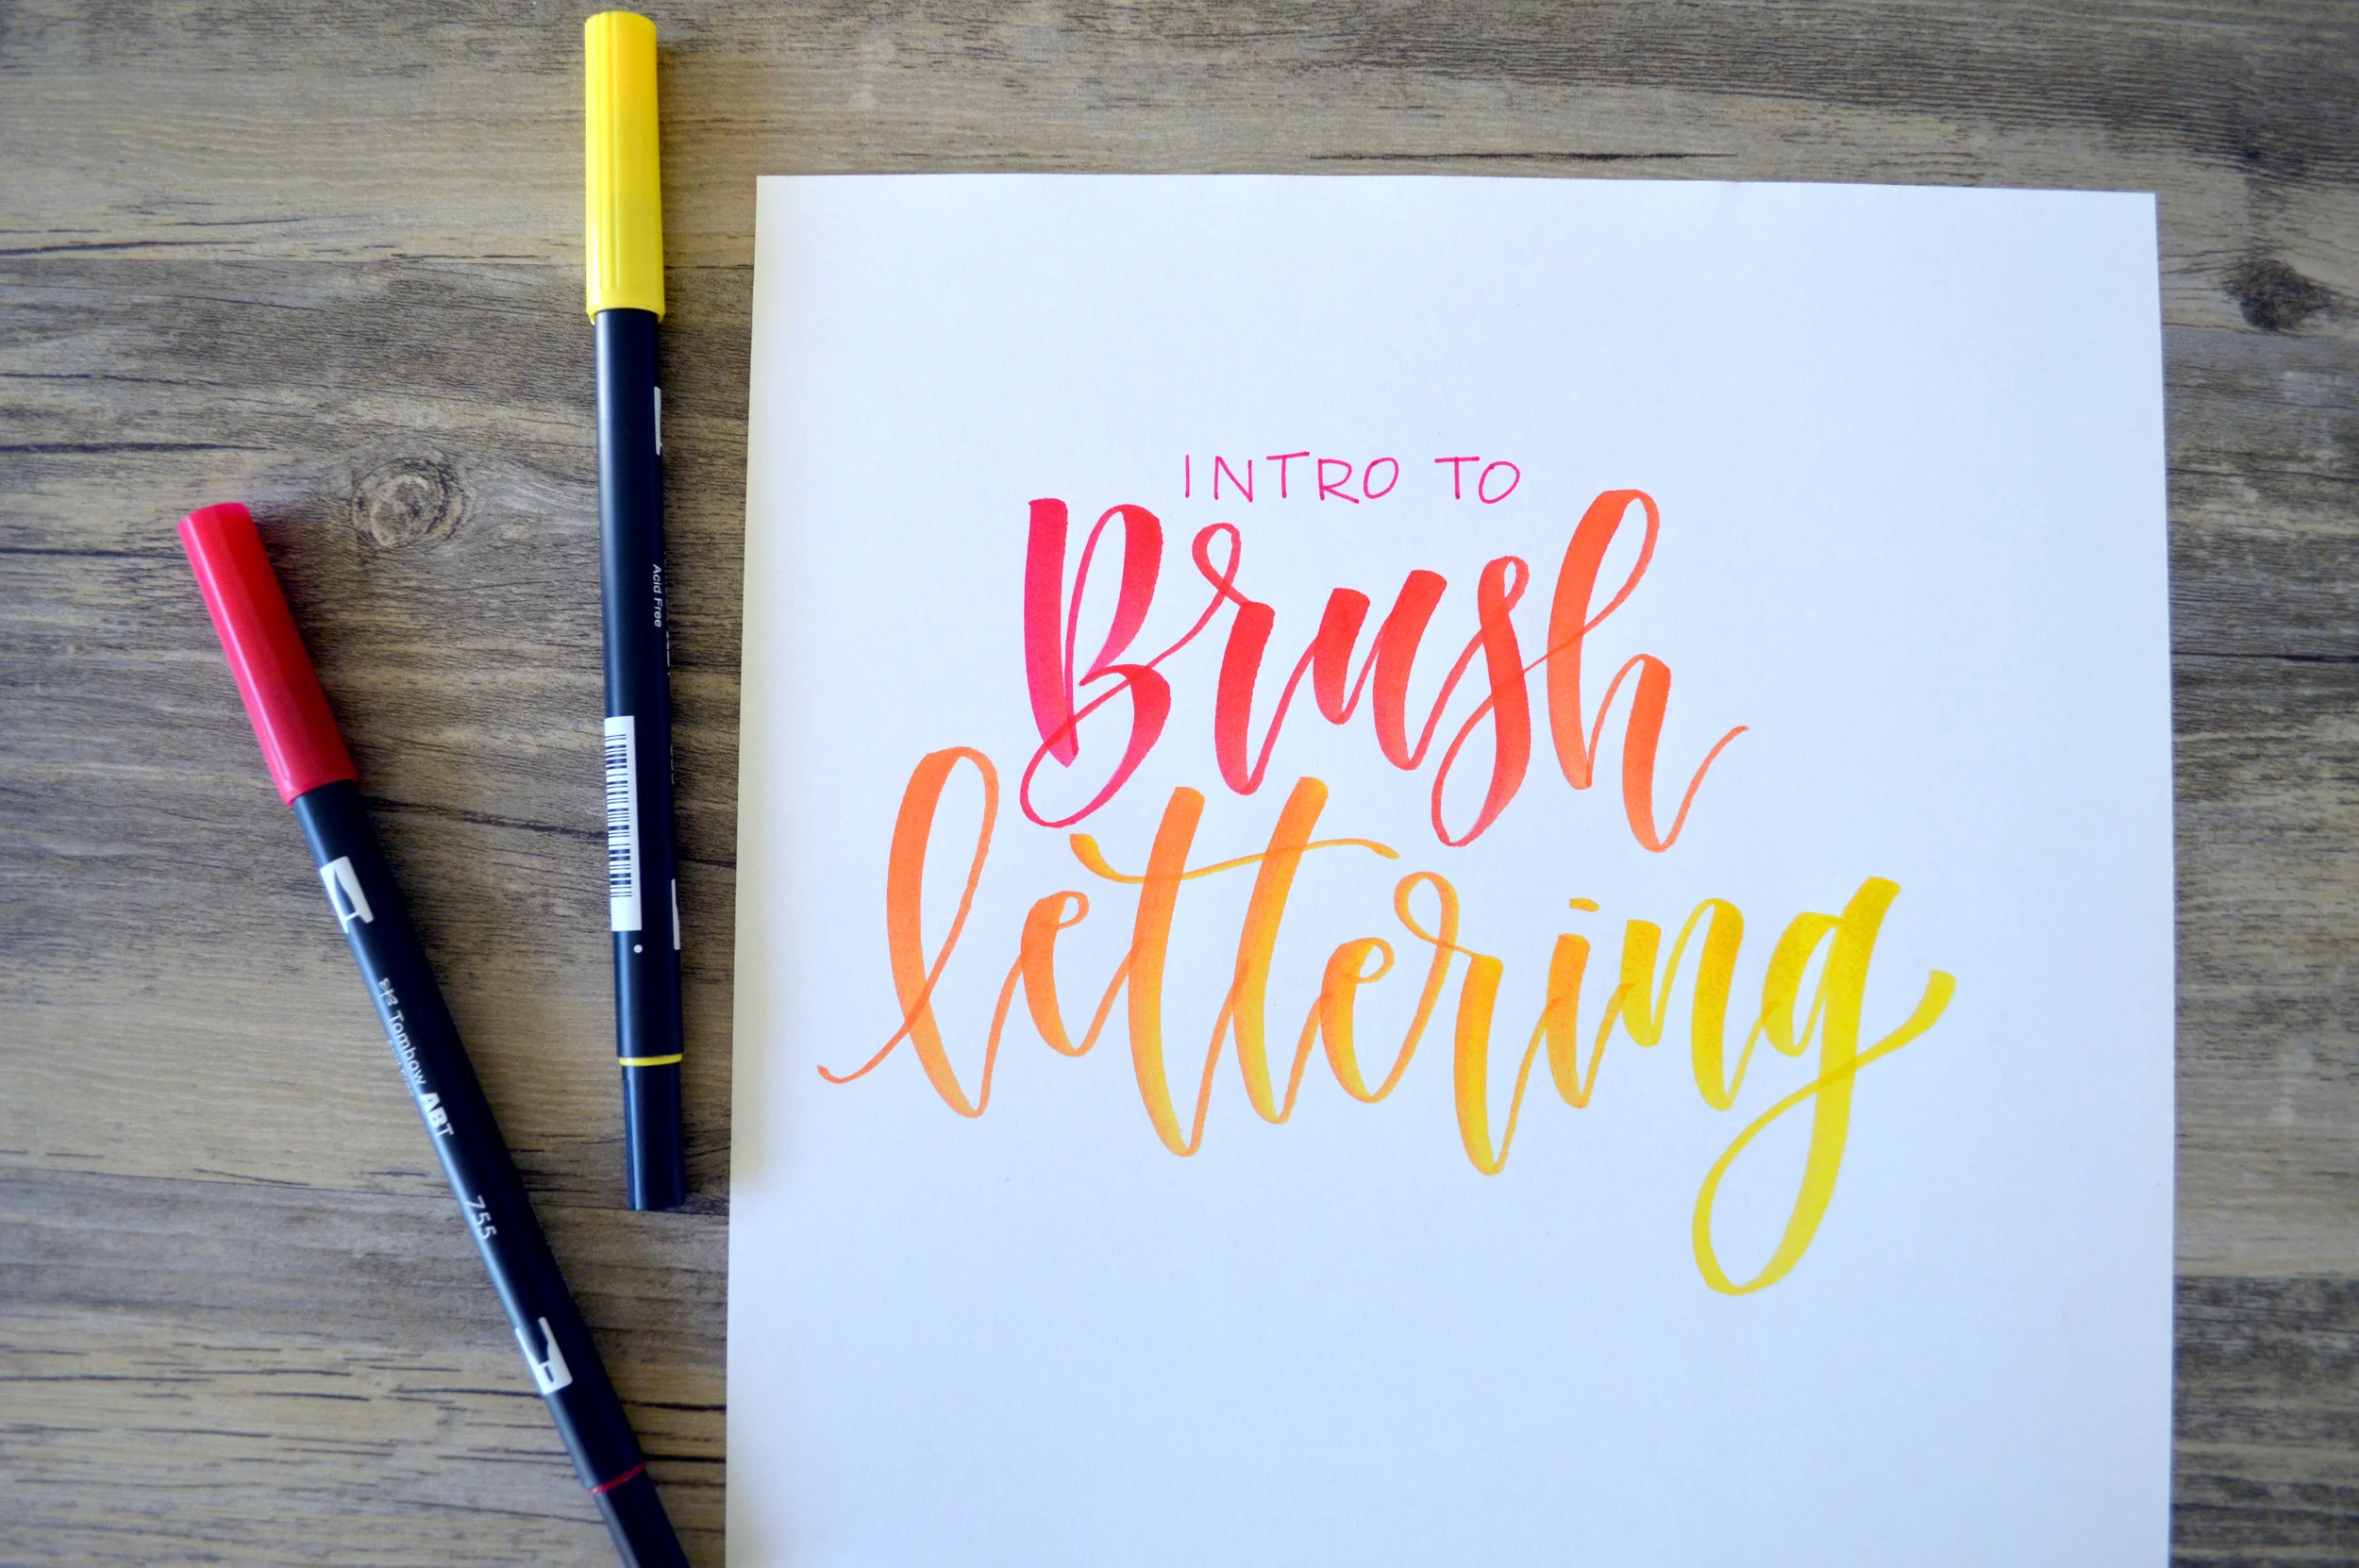 INTRO TO
Brush
lettering
Acid Free
Tombow ABT
755